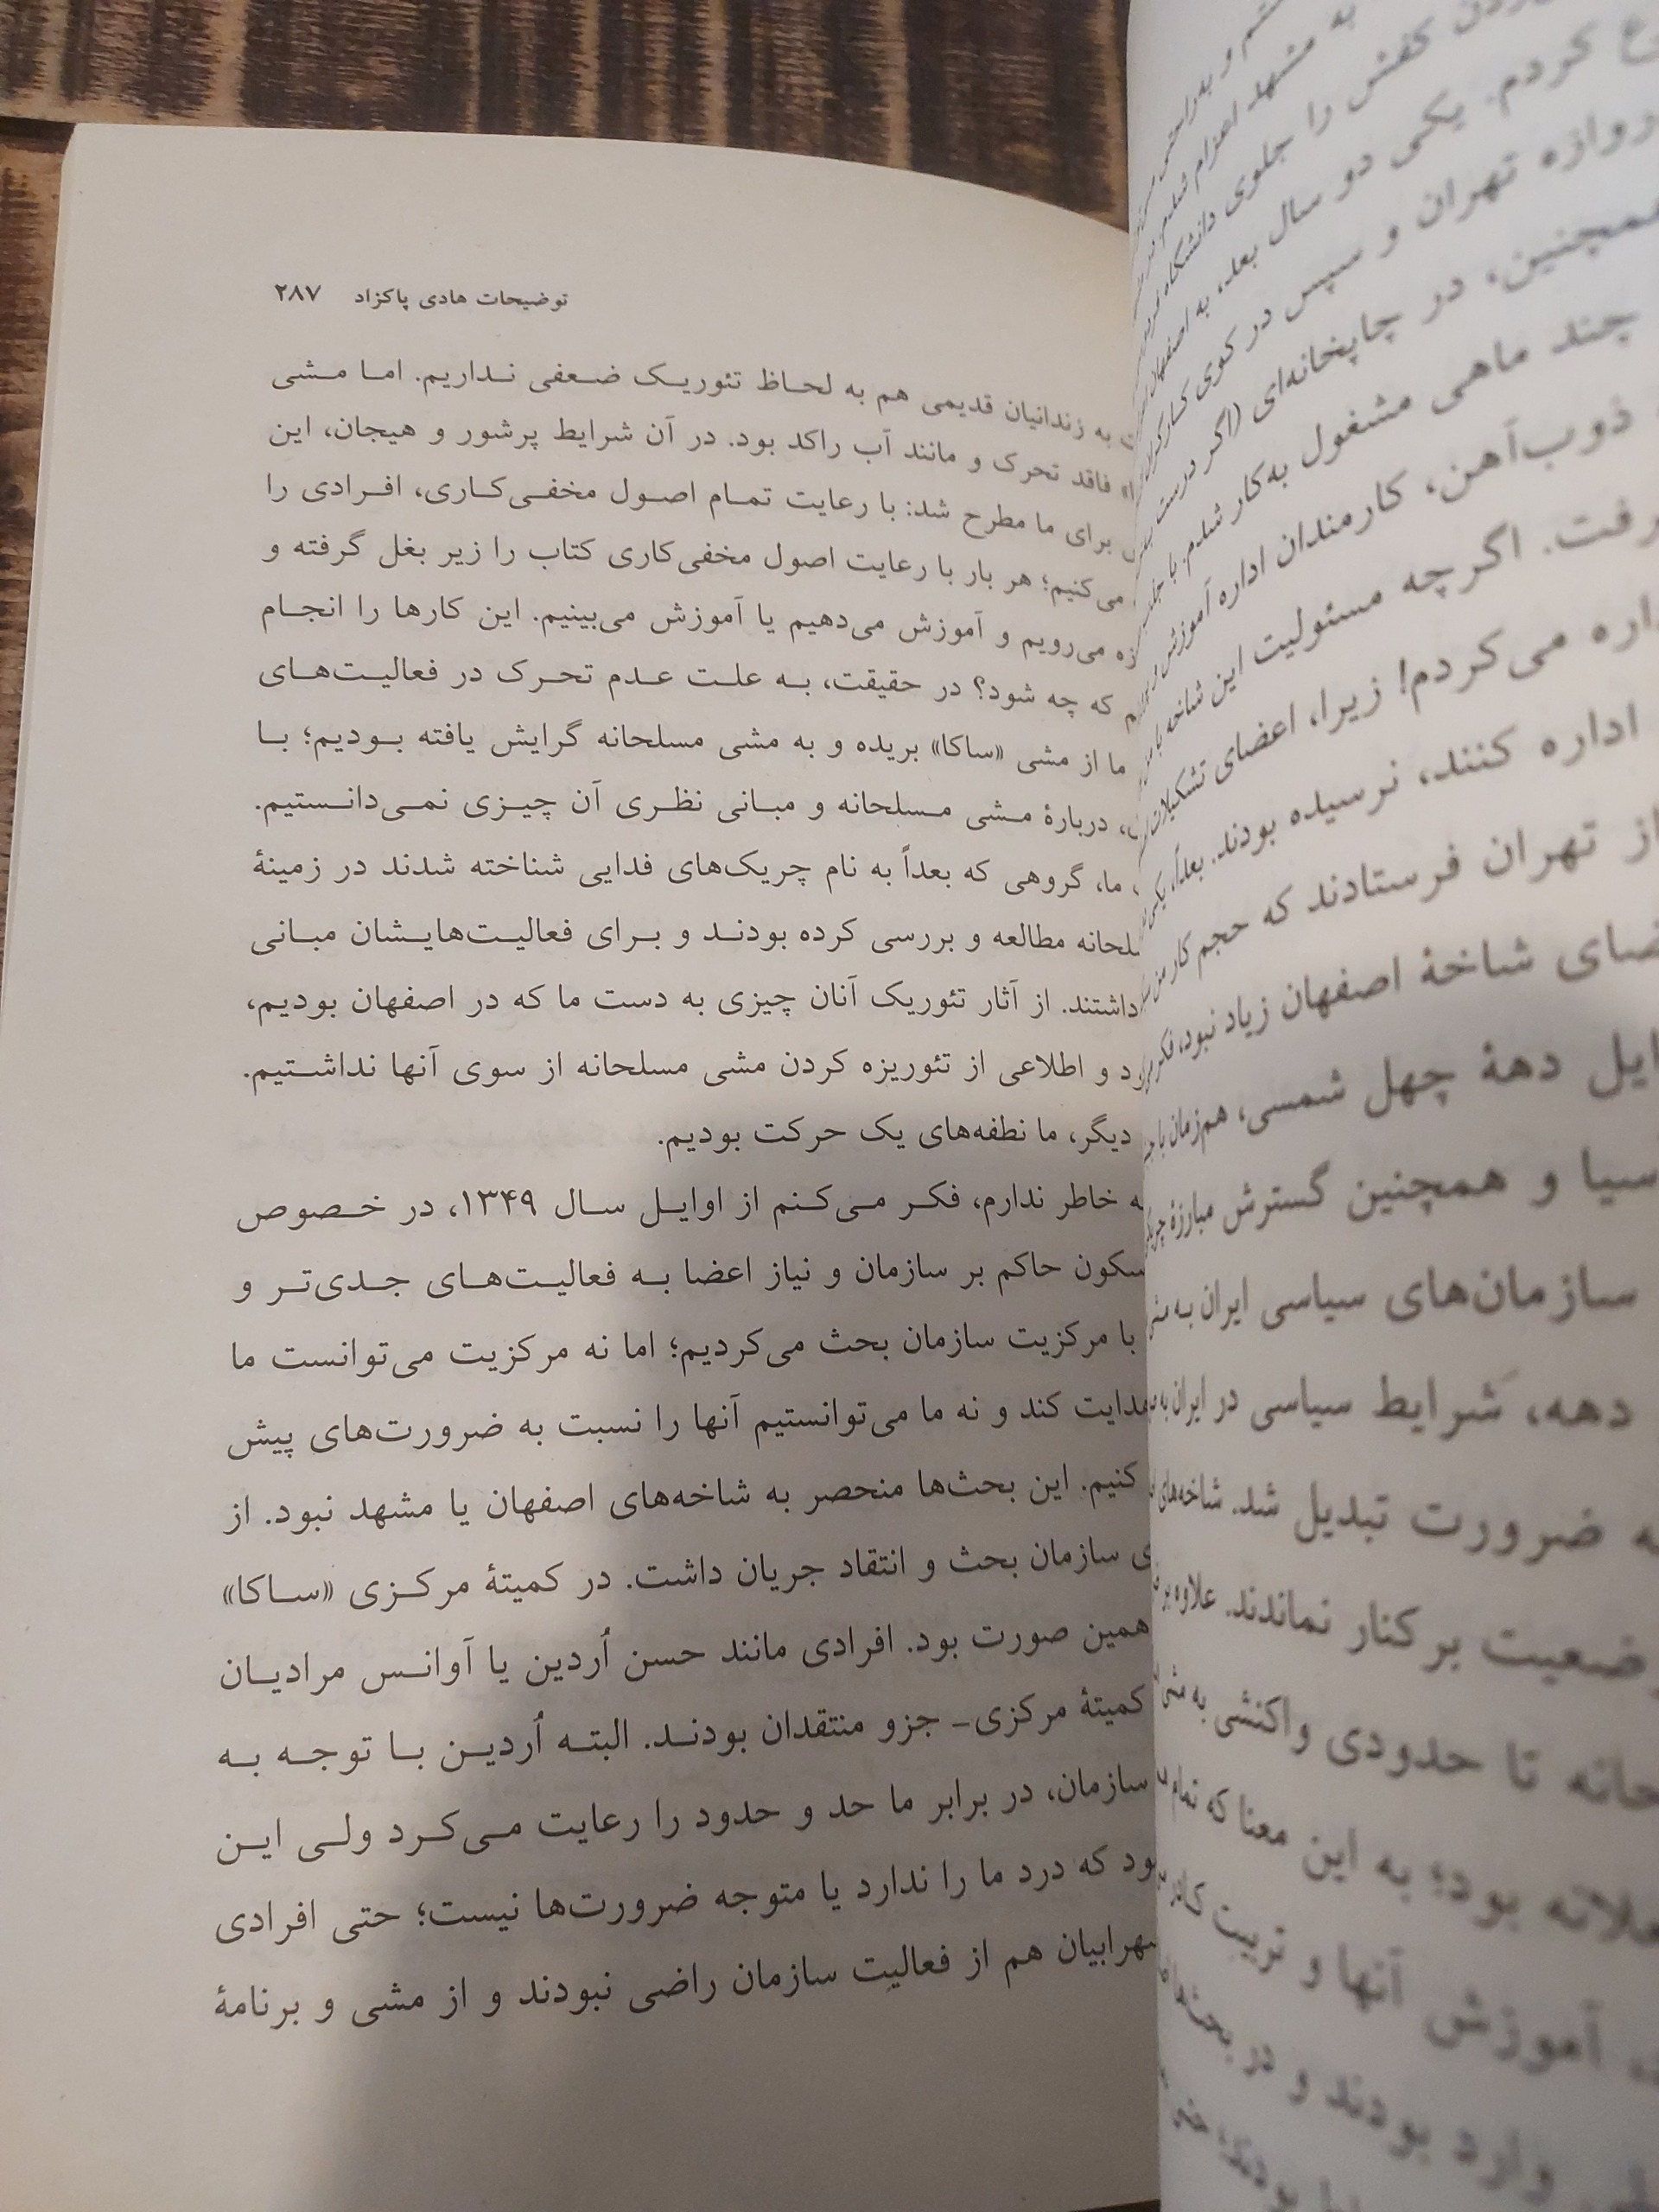 توضیحات هادی پاکزاد ۲۸۷
به زندانیان قدیمی هم به لحاظ تئوریک ضعفی نداریم. اما مشی
فاقد تحرک و مانند آب راکد بود. در آن شرایط پرشور و هیجان، این
برای ما مطرح شد: با رعایت تمام اصول مخفی‌کاری، افرادی را
می‌کنیم؛ هر بار با رعایت اصول مخفی‌کاری کتاب را زیر بغل گرفته و
می‌رویم و آموزش می‌دهیم یا آموزش می‌بینیم. این کارها را انجام
که چه شود؟ در حقیقت، به علت عدم تحرک در فعالیت‌های
ما از مشی «ساکا» بریده و به مشی مسلحانه گرایش یافته بودیم؛ با
دربارهٔ مشی مسلحانه و مبانی نظری آن چیزی نمی‌دانستیم.
ما، گروهی که بعداً به نام چریک‌های فدایی شناخته شدند در زمینهٔ
مطالعه و بررسی کرده بودند و برای فعالیت‌هایشان مبانی
داشتند. از آثار تئوریک آنان چیزی به دست ما که در اصفهان بودیم،
و اطلاعی از تئوریزه کردن مشی مسلحانه از سوی آنها نداشتیم.
دیگر، ما نطفه‌های یک حرکت بودیم.
خاطر ندارم، فکر می‌کنم از اوایل سال ۱۳۴۹، در خصوص
سکون حاکم بر سازمان و نیاز اعضا به فعالیت‌های جدی‌تر و
با مرکزیت سازمان بحث می‌کردیم؛ اما نه مرکزیت می‌توانست ما
هدایت کند و نه ما می‌توانستیم آنها را نسبت به ضرورت‌های پیش
کنیم. این بحث‌ها منحصر به شاخه‌های اصفهان یا مشهد نبود. از
سازمان بحث و انتقاد جریان داشت. در کمیتهٔ مرکزی «ساکا»
همین صورت بود. افرادی مانند حسن اُردین یا آوانس مرادیان
کمیتهٔ مرکزی- جزو منتقدان بودند. البته اُردین با توجه به
سازمان، در برابر ما حد و حدود را رعایت می‌کرد ولی این
که درد ما را ندارد یا متوجه ضرورت‌ها نیست؛ حتی افرادی
سهرابیان هم از فعالیت سازمان راضی نبودند و از مشی و برنامهٔ
به مشهد اعزام شدم.
کفش را جلوی دانشگاه
کردم. یکی دو سال بعد، به اصفهان
دروازه تهران و سپس در کوی کارگران
همچنین، در چاپخانه‌ای (اگر درست
چند ماهی مشغول به‌کار شدم. با
ذوب‌آهن، کارمندان اداره آموزش و
اگرچه مسئولیت این شاخه با
می‌کردم! زیرا، اعضای تشکیلات
اداره کنند، نرسیده بودند. بعداً، یکی
از تهران فرستادند که حجم کار من
شاخهٔ اصفهان زیاد نبود، فکر
دههٔ چهل شمسی، هم‌زمان با
و همچنین گسترش مبارزهٔ
سازمان‌های سیاسی ایران به
دهه، شرایط سیاسی در ایران به
ضرورت تبدیل شد. شاخه‌های
وضعیت برکنار نماندند. علاوه بر
تا حدودی واکنشی به
بود؛ به این معنا که تمام
آموزش آنها و تربیت
وارد بودند و در بحث‌ها